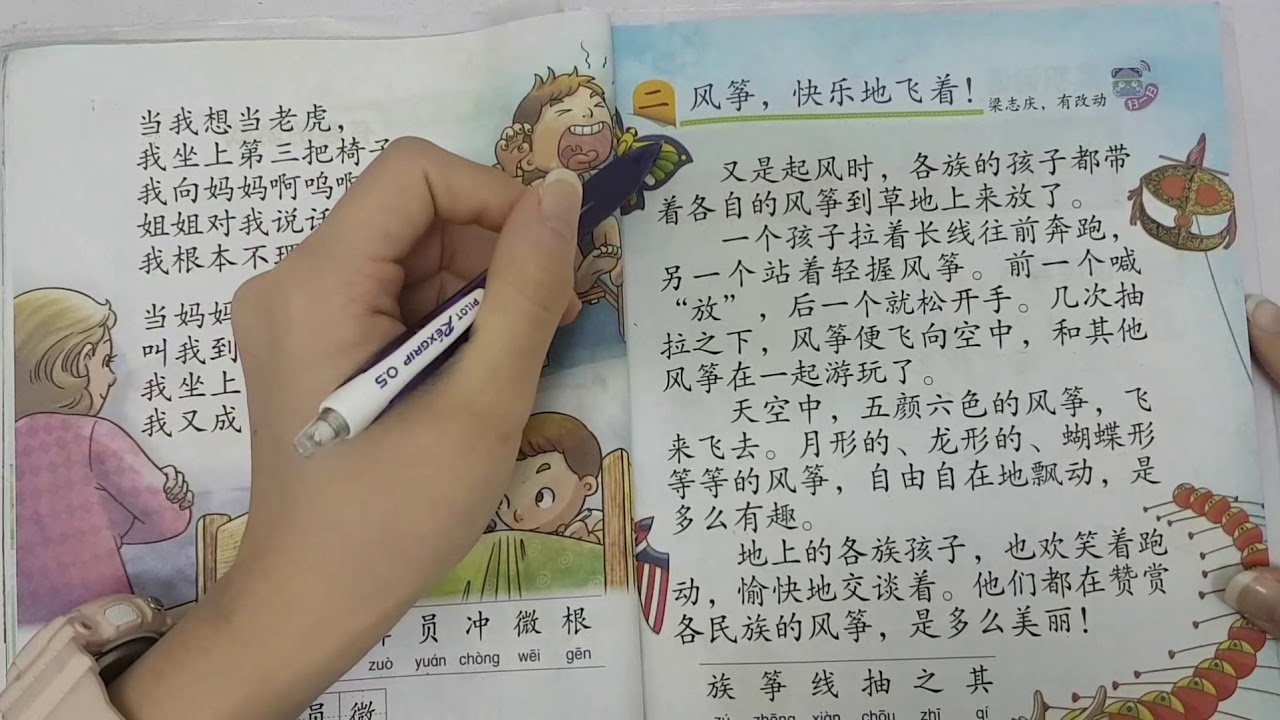 当我想当老虎，
我坐上第三把椅子
我向妈妈啊呜啊
姐姐对我说话
我根本不理
当妈妈
叫我到
我坐上
我又成
员 冲 微 根
zuò yuán chòng wēi gēn
员 微
PILOT RéXGRIP 0.5
二 风筝，快乐地飞着！
梁志庆，有改动
扫一扫
又是起风时，各族的孩子都带
着各自的风筝到草地上来放了。
一个孩子拉着长线往前奔跑，
另一个站着轻握风筝。前一个喊
“放”，后一个就松开手。几次抽
拉之下，风筝便飞向空中，和其他
风筝在一起游玩了。
天空中，五颜六色的风筝，飞
来飞去。月形的、龙形的、蝴蝶形
等等的风筝，自由自在地飘动，是
多么有趣。
地上的各族孩子，也欢笑着跑
动，愉快地交谈着。他们都在赞赏
各民族的风筝，是多么美丽！
族 筝 线 抽 之 其
zú zhēng xiàn chōu zhī qí